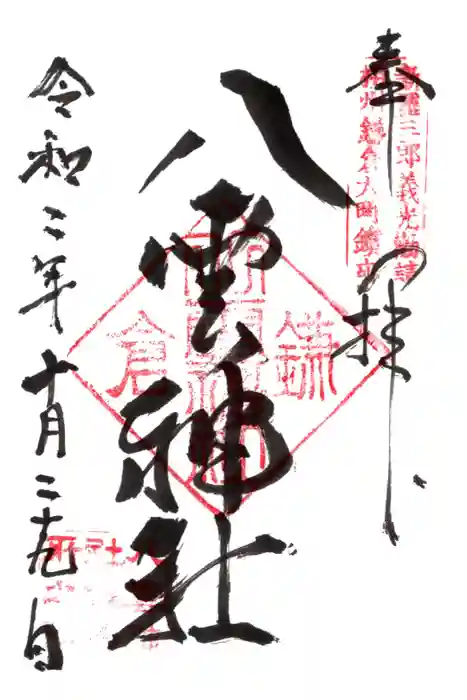 奉拝
新羅三郎義光勧請
相州鎌倉大町鎮座
八雲神社
鎌倉
令和二年十月二十九日